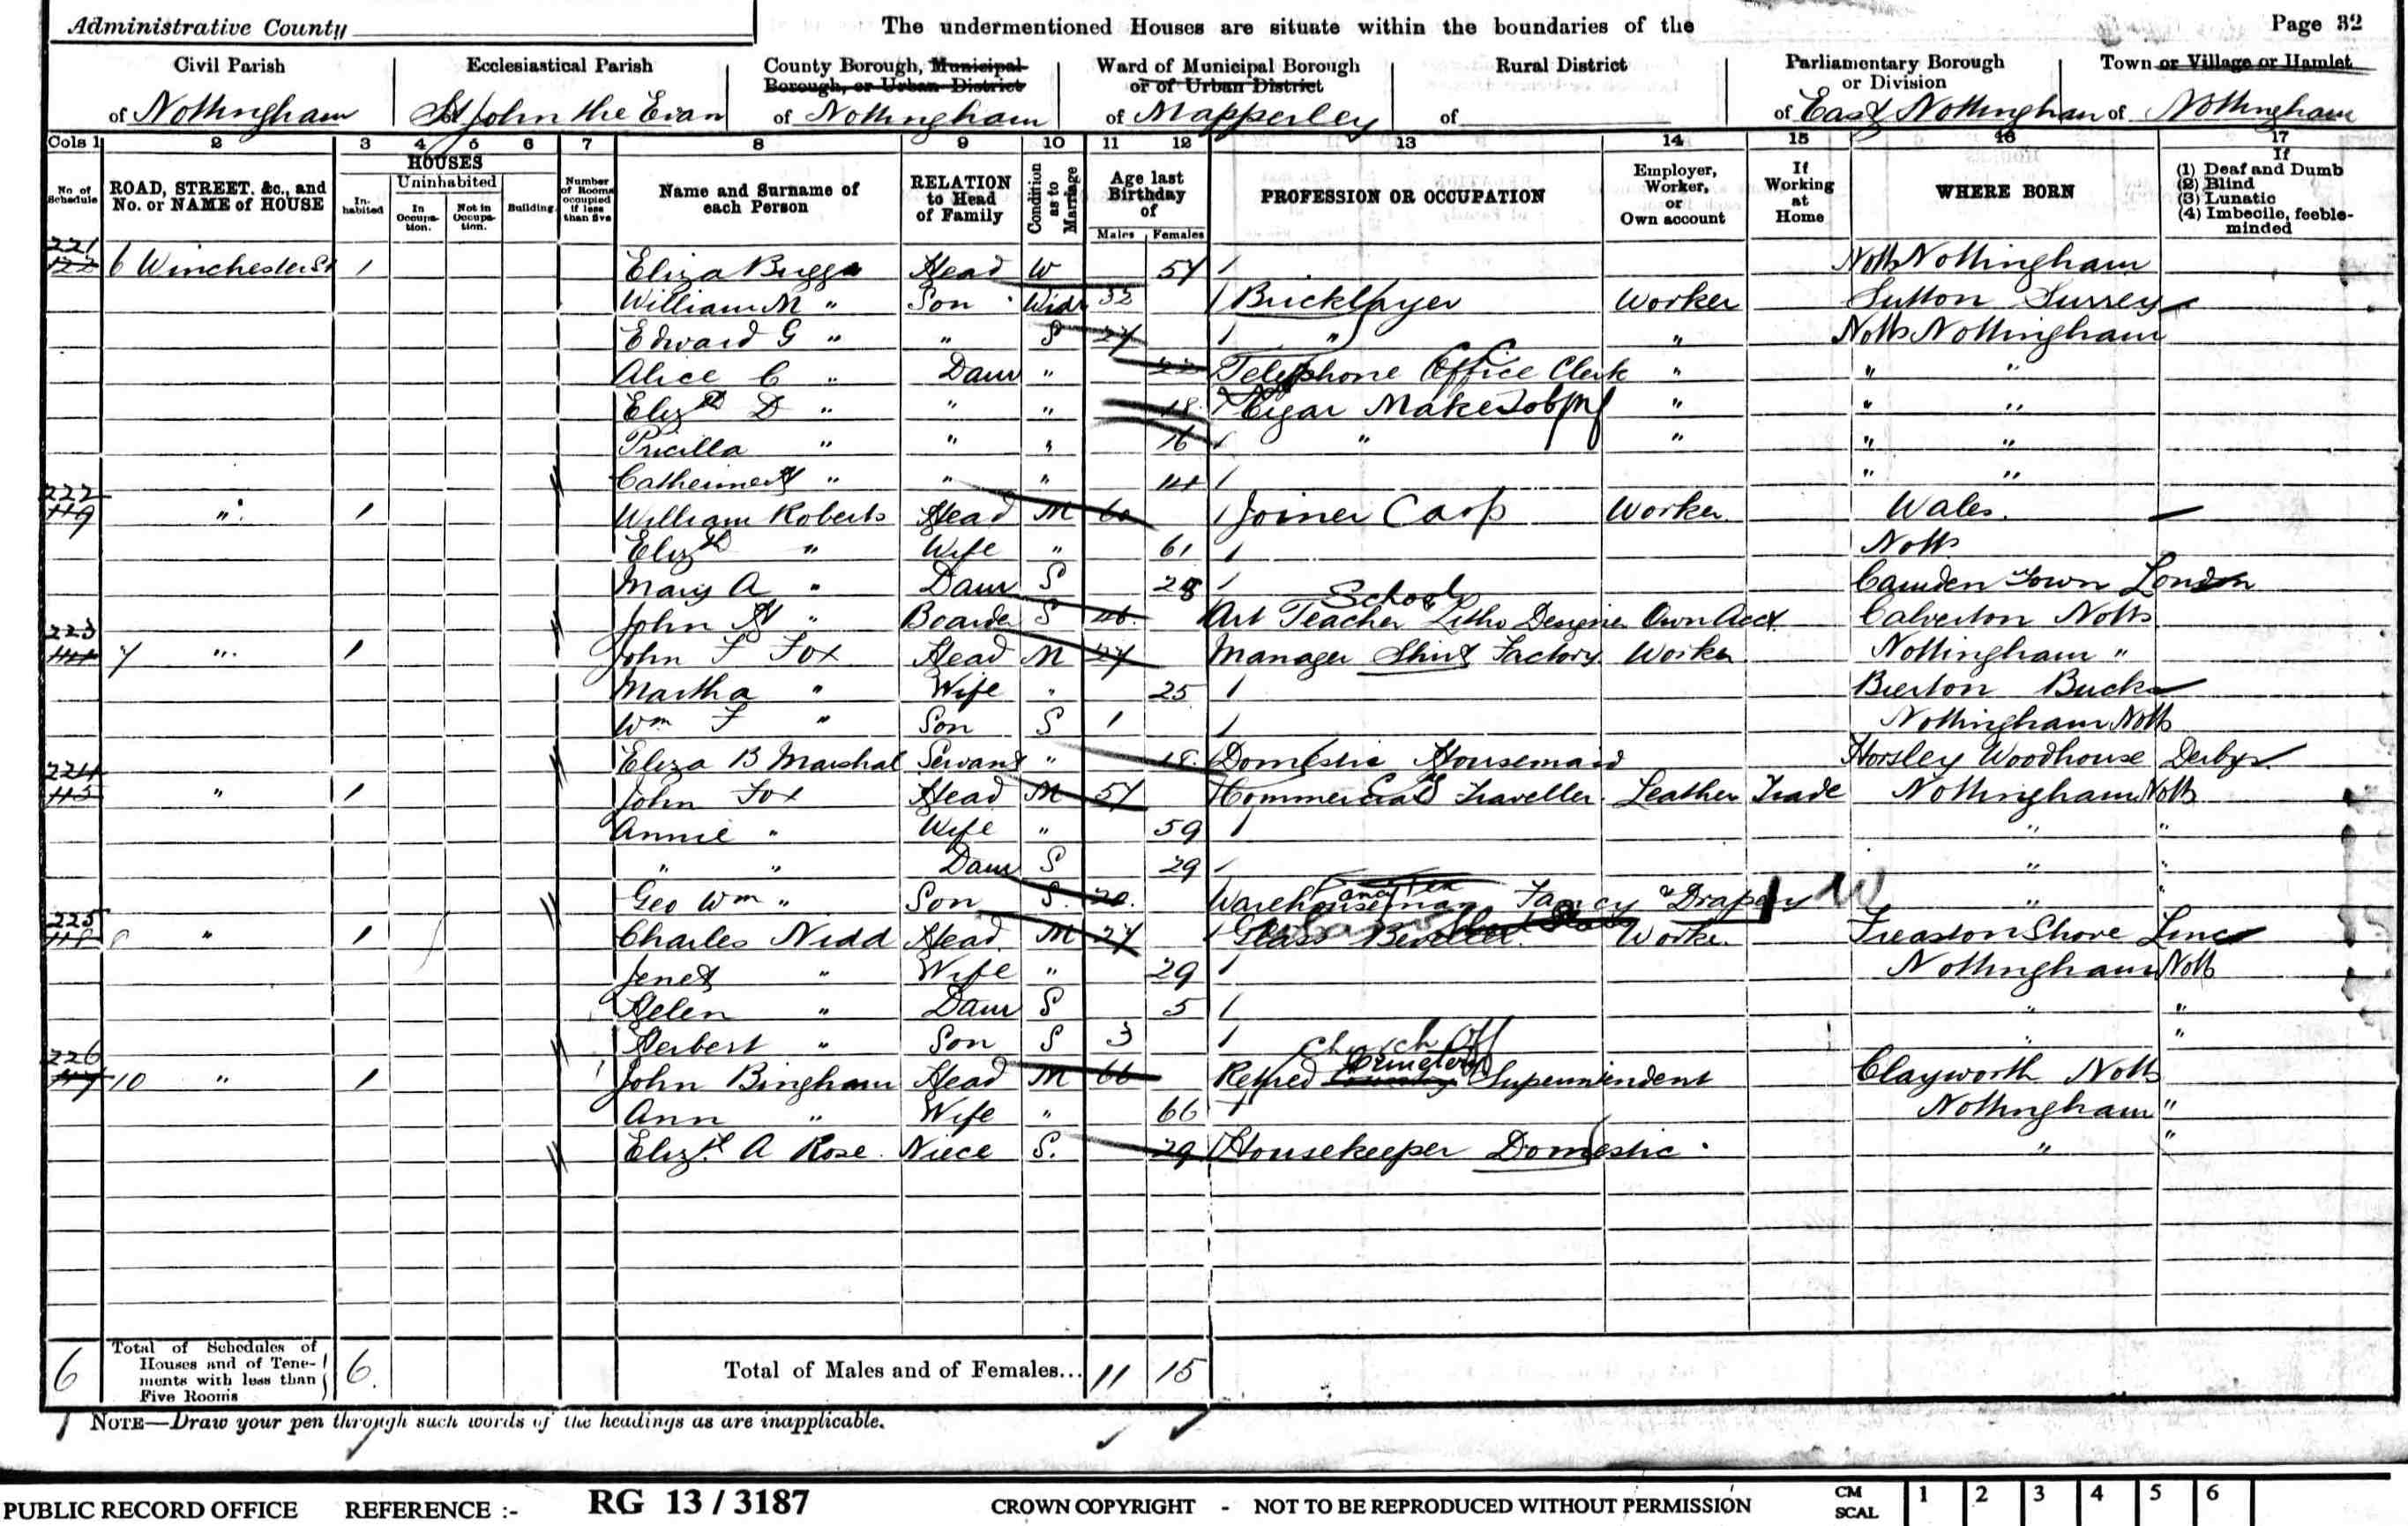 Administrative County The undermentioned Houses are situate within the boundaries of the Page 32
Civil Parish Ecclesiastical Parish County Borough, Municipal Borough, or Urban District Ward of Municipal Borough or of Urban District Rural District Parliamentary Borough or Division Town or Village or Hamlet
of Nottingham St John the Evan of Nottingham of Mapperley of of East Nottingham of Nottingham
Cols 1 2 3 4 5 6 7 8 9 10 11 12 13 14 15 16 17
No of Schedule ROAD, STREET, &c., and No. or NAME of HOUSE HOUSES Inhabited Uninhabited In Occupation. Not in Occupation. Building. Number of Rooms occupied if less than five Name and Surname of each Person RELATION to Head of Family Condition as to Marriage Age last Birthday of Males Females PROFESSION OR OCCUPATION Employer, Worker, or Own account If Working at Home WHERE BORN If (1) Deaf and Dumb (2) Blind (3) Lunatic (4) Imbecile, feeble-minded
221 6 Winchester St 1 Eliza Bugg Head W 57 Notts Nottingham
William M " Son Widr 32 Bricklayer Worker Sutton Surrey
Edward G " " S 27 " " Notts Nottingham
Alice C " Daur " Telephone Office Clerk " " "
Elizth D " " " 18 Cigar Maker " " "
Pricilla " " " 16 " " " "
Catherine " " " 14 " "
222 119 " 1 William Roberts Head M 60 Joiner Carp Worker Wales
Elizth " Wife " 61 Notts
Mary A " Daur S 28 Camden Town London
John " Boarder S School Art Teacher Litho Designer Own Acct Calverton Notts
223 7 " 1 John F Fox Head M 27 Manager Shirt Factory Worker Nottingham "
Martha " Wife " 25 Bierton Bucks
Wm F " Son S 1 Nottingham Notts
Eliza B Marshal Servant " 18 Domestic Housemaid Horsley Woodhouse Derbys
224 " 1 John Fox Head M 57 Commercial Traveller Leather Trade Nottingham Notts
Annie " Wife " 59 " "
" " Daur S 29 " "
Geo Wm " Son S. 20 Warehouseman Fancy Drapery " "
225 118 8 " 1 Charles Nidd Head M 27 Glass Beveller Worker Lincs
Jenet " Wife " 29 Nottingham Notts
Helen " Daur S 5 " "
Herbert " Son S 3 " "
226 10 " 1 John Bingham Head M 66 Church Off Retired Superintendent Clayworth Notts
Ann " Wife " 66 Nottingham "
Elizth A Rose Niece S. 29 Housekeeper Domestic " "
6 Total of Schedules of Houses and of Tenements with less than Five Rooms 6 Total of Males and of Females... 11 15
NOTE—Draw your pen through such words of the headings as are inapplicable.
PUBLIC RECORD OFFICE REFERENCE :- RG 13 / 3187 CROWN COPYRIGHT - NOT TO BE REPRODUCED WITHOUT PERMISSION CM SCAL 1 2 3 4 5 6